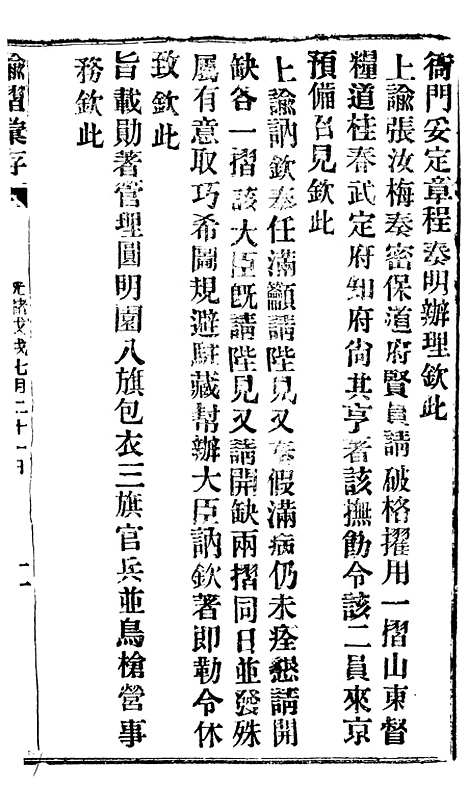 衙門妥定章程奏明辦理欽此
上諭張汝梅奏密保道府賢員請破格擢用一摺山東督
糧道桂春武定府知府尙其亨著該撫飭令該二員來京
預備召見欽此
上諭訥欽奏任滿籲請陛見又奏假滿病仍未痊懇請開
缺各一摺該大臣旣請陛見又請開缺兩摺同日並發殊
屬有意取巧希圖規避駐藏幫辦大臣訥欽著卽勒令休
致欽此
旨載勛著管理圓明園八旗包衣三旗官兵並鳥槍營事
務欽此
諭摺彙存
光緒戊戌七月二十一日
二